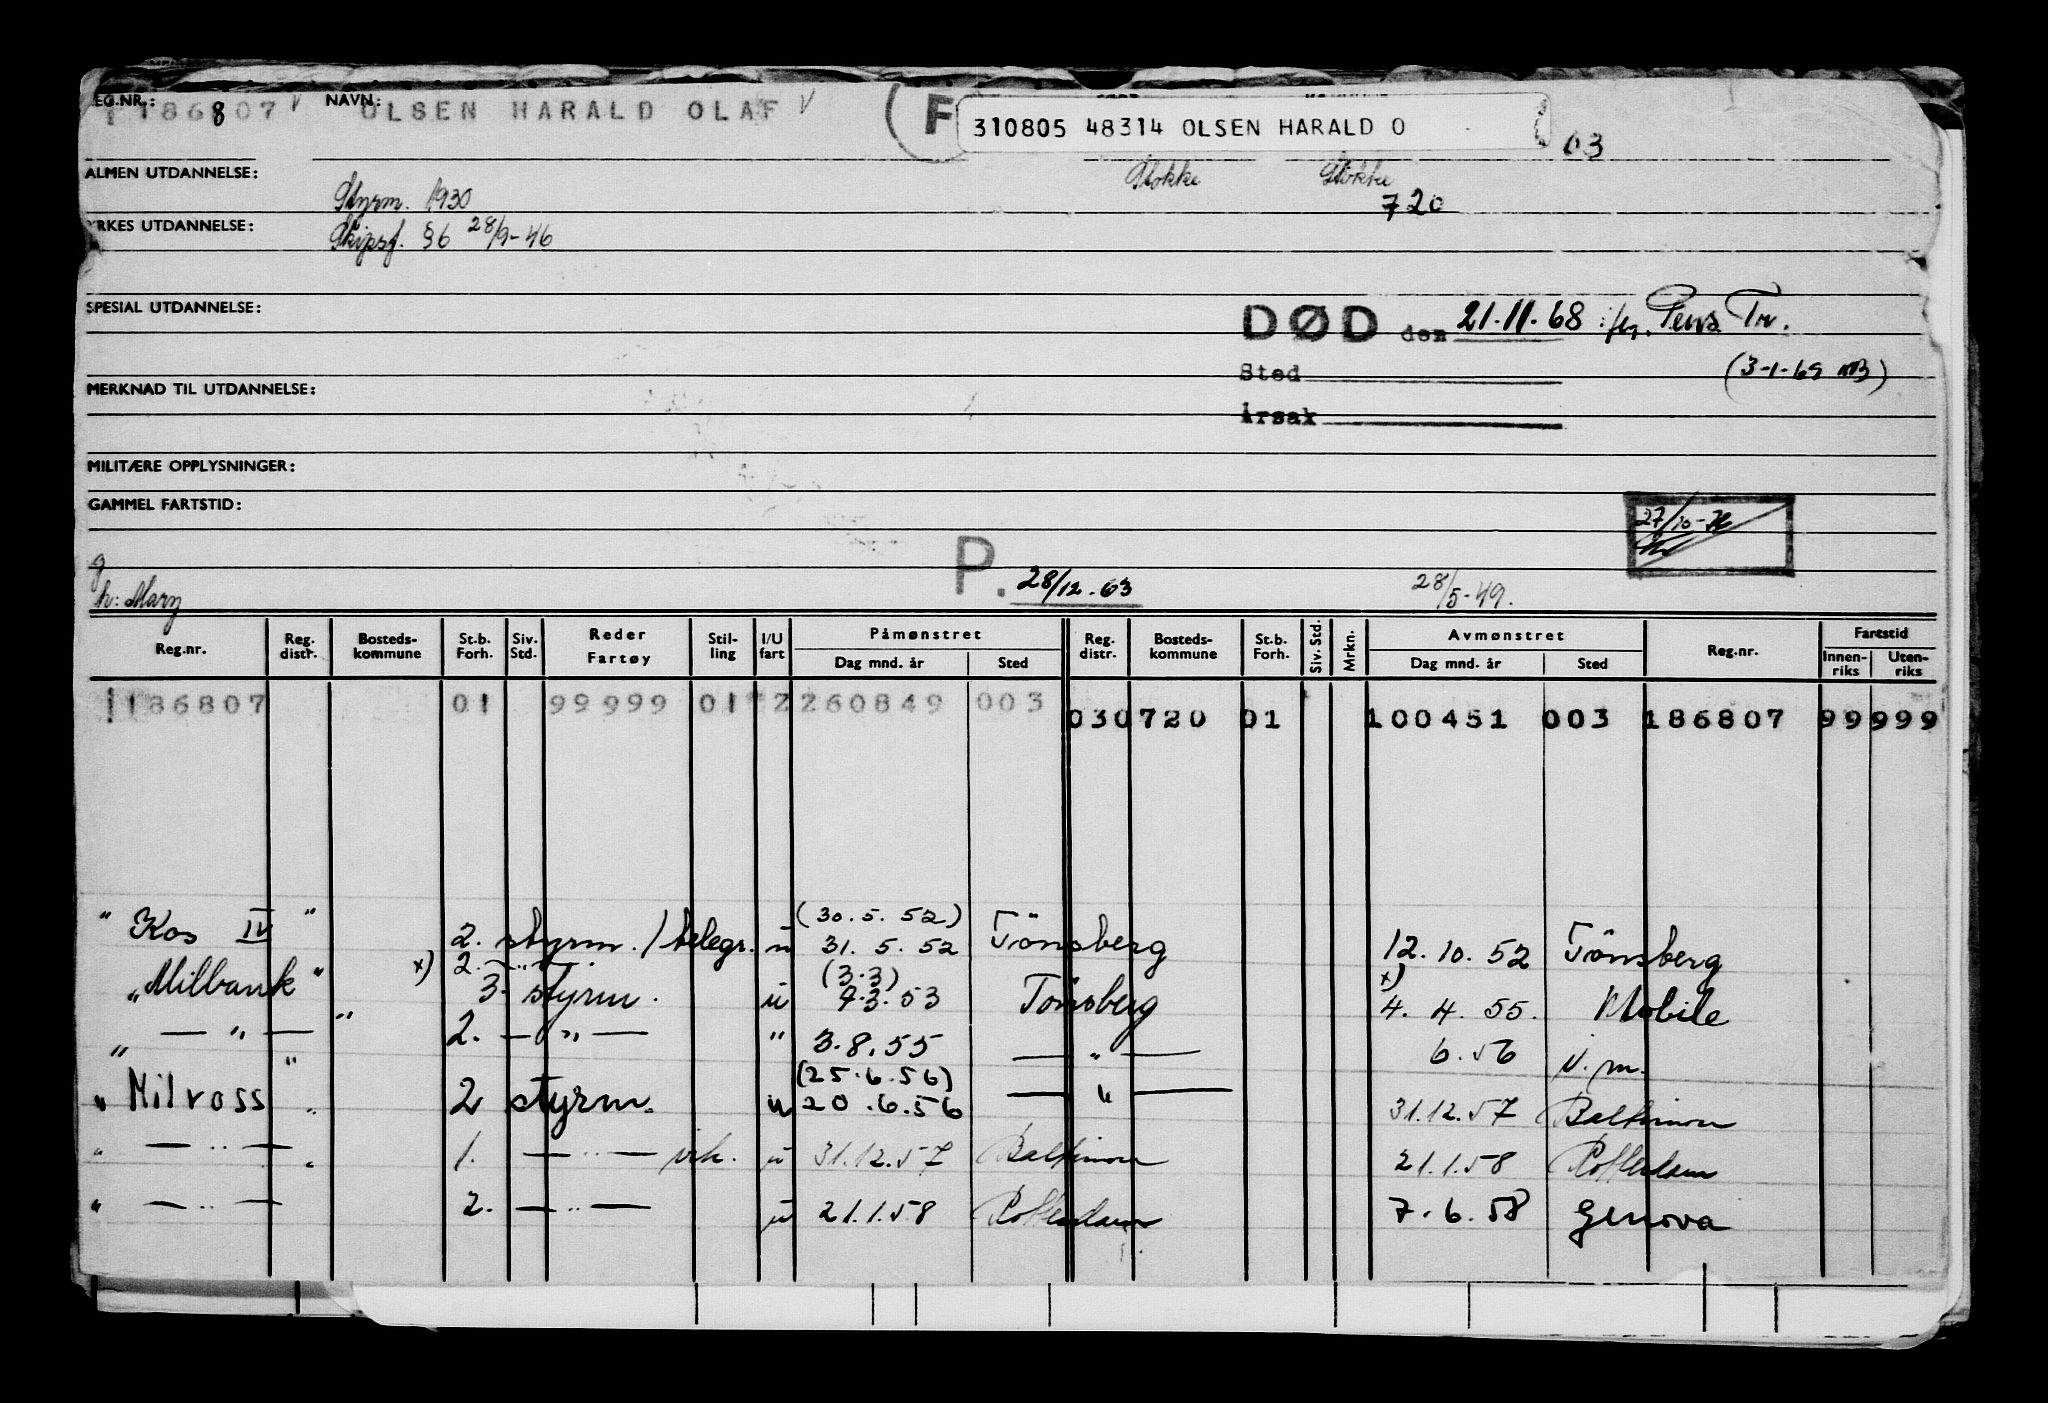 REG.NR.: 186807 V NAVN: OLSEN HARALD OLAF V (F 310805 48314 OLSEN HARALD O
03
ALMEN UTDANNELSE: Stokke Stokke
Styrm. 1930 720
YRKES UTDANNELSE: Skipsf. §6 28/9-46
SPESIAL UTDANNELSE: DØD den 21.11.68 Pens. Tr.
Sted (3-1-69
MERKNAD TIL UTDANNELSE:
Årsak
MILITÆRE OPPLYSNINGER:
GAMMEL FARTSTID:
27/10-72
g P. 28/12.63 28/5-49.
h: Mary
Reg.nr. Reg. distr. Bosteds-kommune St.b. Forh. Siv. Std. Reder Fartøy Stil-ling I/U fart Påmønstret Dag mnd. år Sted Reg. distr. Bosteds-kommune St.b. Forh. Siv. Std. Mrkn. Avmønstret Dag mnd. år Sted Reg.nr. Fartstid Innen-riks Uten-riks
186807 01 99999 01 2 260849 003
030720 01 100451 003 186807 99999
(30.5.52)
"Kos IV" 2. styrm./telegr. u 31.5.52 Tönsberg 12.10.52 Tönsberg
x) 2. — " — (3.3) x)
"Milbank" 3. styrm. u 7.3.53 Tönsberg 4.4.55. Mobile
" — " — " 2. — " — " 3.8.55 — " — 6.56 u.m.
(25.6.56)
"Milross" 2 styrm. u 20.6.56 — " — 31.12.57 Baltimore
" — " — " 1. — " — vik. u 31.12.57 Baltimore 21.1.58 Rotterdam
" — " — 2. — " — u 21.1.58 Rotterdam 7.6.58 Genova